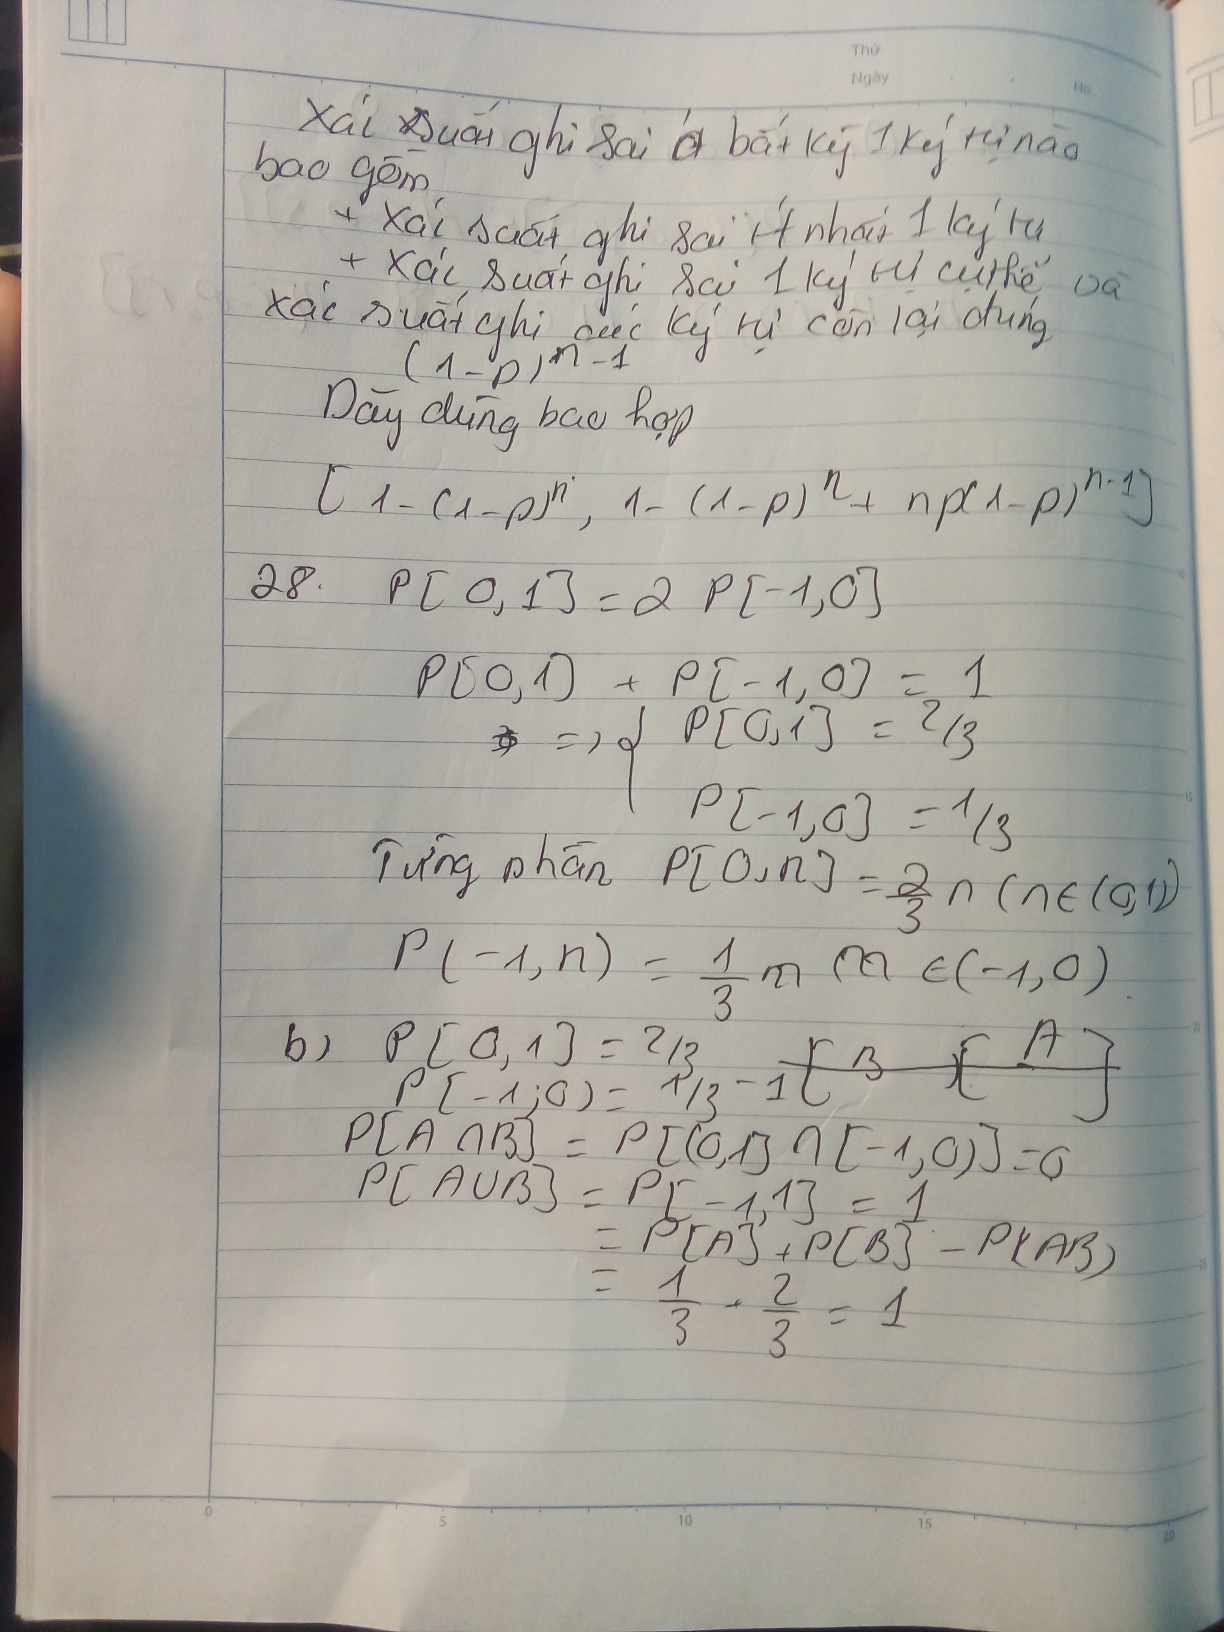 Thứ
Ngày No.
Xác suất ghi sai ở bất kỳ 1 ký tự nào
bao gồm
+ Xác suất ghi sai ít nhất 1 ký tự
+ Xác suất ghi sai 1 ký tự cụ thể và
xác suất ghi các ký tự còn lại đúng
(1-p)^n-1
Dãy dùng bao hợp
[1-(1-p)^n, 1-(1-p)^n + np(1-p)^n-1]
28. P[0,1] = 2 P[-1,0]
P[0,1] + P[-1,0] = 1
=> { P[0,1] = 2/3
P[-1,0] = 1/3
Từng phần P[0,n] = 2/3 n (n∈(0,1))
P(-1,n) = 1/3 m m ∈(-1,0)
b) P[0,1] = 2/3 [ B )[ A ]
P[-1,0) = 1/3 -1
P[A∩B] = P[(0,1] ∩ [-1,0)] = 0
P[A∪B] = P[-1,1] = 1
= P[A] + P[B] - P(AB)
= 1/3 + 2/3 = 1
0 5 10 15 20